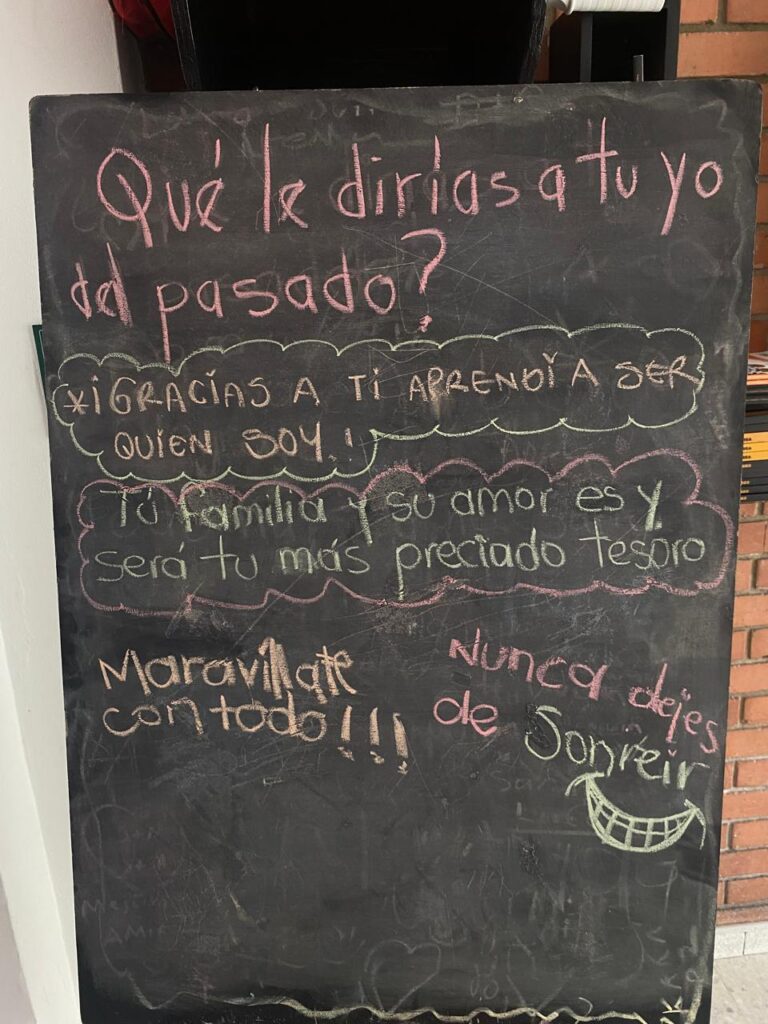 Qué le dirías a tu yo
del pasado?
*¡GRACÍAS A TÍ APRENDÍ A SER
QUÍEN SOY.!
Tú familia y su amor es y
será tu más preciado tesoro
Maravíllate
con todo!!!
Nunca dejes
de Sonreír